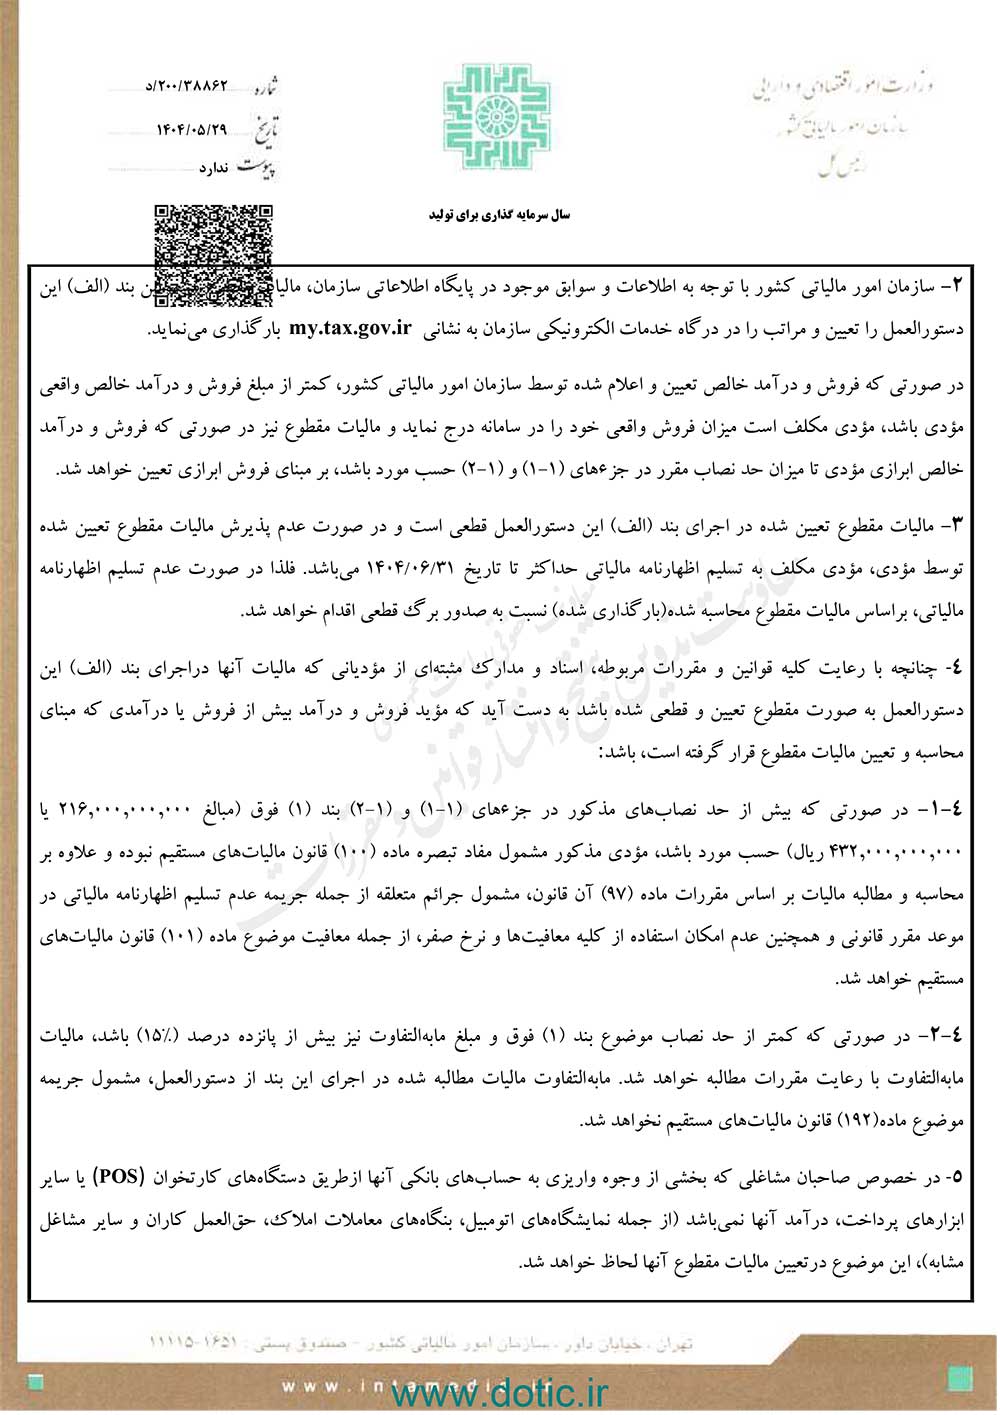 وزارت امور اقتصادی و دارایی
سازمان امور مالیاتی کشور
رئیس کل
شماره ۲۰۰/۳۸۸۶۲/د
تاریخ ۱۴۰۴/۰۵/۲۹
پیوست ندارد
سال سرمایه گذاری برای تولید
۲- سازمان امور مالیاتی کشور با توجه به اطلاعات و سوابق موجود در پایگاه اطلاعاتی سازمان، بند (الف) این
دستورالعمل را تعیین و مراتب را در درگاه خدمات الکترونیکی سازمان به نشانی my.tax.gov.ir بارگذاری می‌نماید.
در صورتی که فروش و درآمد خالص تعیین و اعلام شده توسط سازمان امور مالیاتی کشور، کمتر از مبلغ فروش و درآمد خالص واقعی
مؤدی باشد، مؤدی مکلف است میزان فروش واقعی خود را در سامانه درج نماید و مالیات مقطوع نیز در صورتی که فروش و درآمد
خالص ابرازی مؤدی تا میزان حد نصاب مقرر در جزءهای (۱-۱) و (۱-۲) حسب مورد باشد، بر مبنای فروش ابرازی تعیین خواهد شد.
۳- مالیات مقطوع تعیین شده در اجرای بند (الف) این دستورالعمل قطعی است و در صورت عدم پذیرش مالیات مقطوع تعیین شده
توسط مؤدی، مؤدی مکلف به تسلیم اظهارنامه مالیاتی حداکثر تا تاریخ ۱۴۰۴/۰۶/۳۱ می‌باشد. فلذا در صورت عدم تسلیم اظهارنامه
مالیاتی، براساس مالیات مقطوع محاسبه شده(بارگذاری شده) نسبت به صدور برگ قطعی اقدام خواهد شد.
۴- چنانچه با رعایت کلیه قوانین و مقررات مربوطه، اسناد و مدارک مثبته‌ای از مؤدیانی که مالیات آنها دراجرای بند (الف) این
دستورالعمل به صورت مقطوع تعیین و قطعی شده باشد به دست آید که مؤید فروش و درآمد بیش از فروش یا درآمدی که مبنای
محاسبه و تعیین مالیات مقطوع قرار گرفته است، باشد:
۴-۱- در صورتی که بیش از حد نصاب‌های مذکور در جزءهای (۱-۱) و (۱-۲) بند (۱) فوق (مبالغ ۲۱۶,۰۰۰,۰۰۰,۰۰۰ یا
۴۳۲,۰۰۰,۰۰۰,۰۰۰ ریال) حسب مورد باشد، مؤدی مذکور مشمول مفاد تبصره ماده (۱۰۰) قانون مالیات‌های مستقیم نبوده و علاوه بر
محاسبه و مطالبه مالیات بر اساس مقررات ماده (۹۷) آن قانون، مشمول جرائم متعلقه از جمله جریمه عدم تسلیم اظهارنامه مالیاتی در
موعد مقرر قانونی و همچنین عدم امکان استفاده از کلیه معافیت‌ها و نرخ صفر، از جمله معافیت موضوع ماده (۱۰۱) قانون مالیات‌های
مستقیم خواهد شد.
۴-۲- در صورتی که کمتر از حد نصاب موضوع بند (۱) فوق و مبلغ مابه‌التفاوت نیز بیش از پانزده درصد (۱۵٪) باشد، مالیات
مابه‌التفاوت با رعایت مقررات مطالبه خواهد شد. مابه‌التفاوت مالیات مطالبه شده در اجرای این بند از دستورالعمل، مشمول جریمه
موضوع ماده(۱۹۲) قانون مالیات‌های مستقیم نخواهد شد.
۵- در خصوص صاحبان مشاغلی که بخشی از وجوه واریزی به حساب‌های بانکی آنها ازطریق دستگاه‌های کارتخوان (POS) یا سایر
ابزارهای پرداخت، درآمد آنها نمی‌باشد (از جمله نمایشگاه‌های اتومبیل، بنگاه‌های معاملات املاک، حق‌العمل کاران و سایر مشاغل
مشابه)، این موضوع درتعیین مالیات مقطوع آنها لحاظ خواهد شد.
تهران ، خیابان داور ، سازمان امور مالیاتی کشور - صندوق پستی : ۱۶۵۱-۱۱۱۱۵
www.dotic.ir